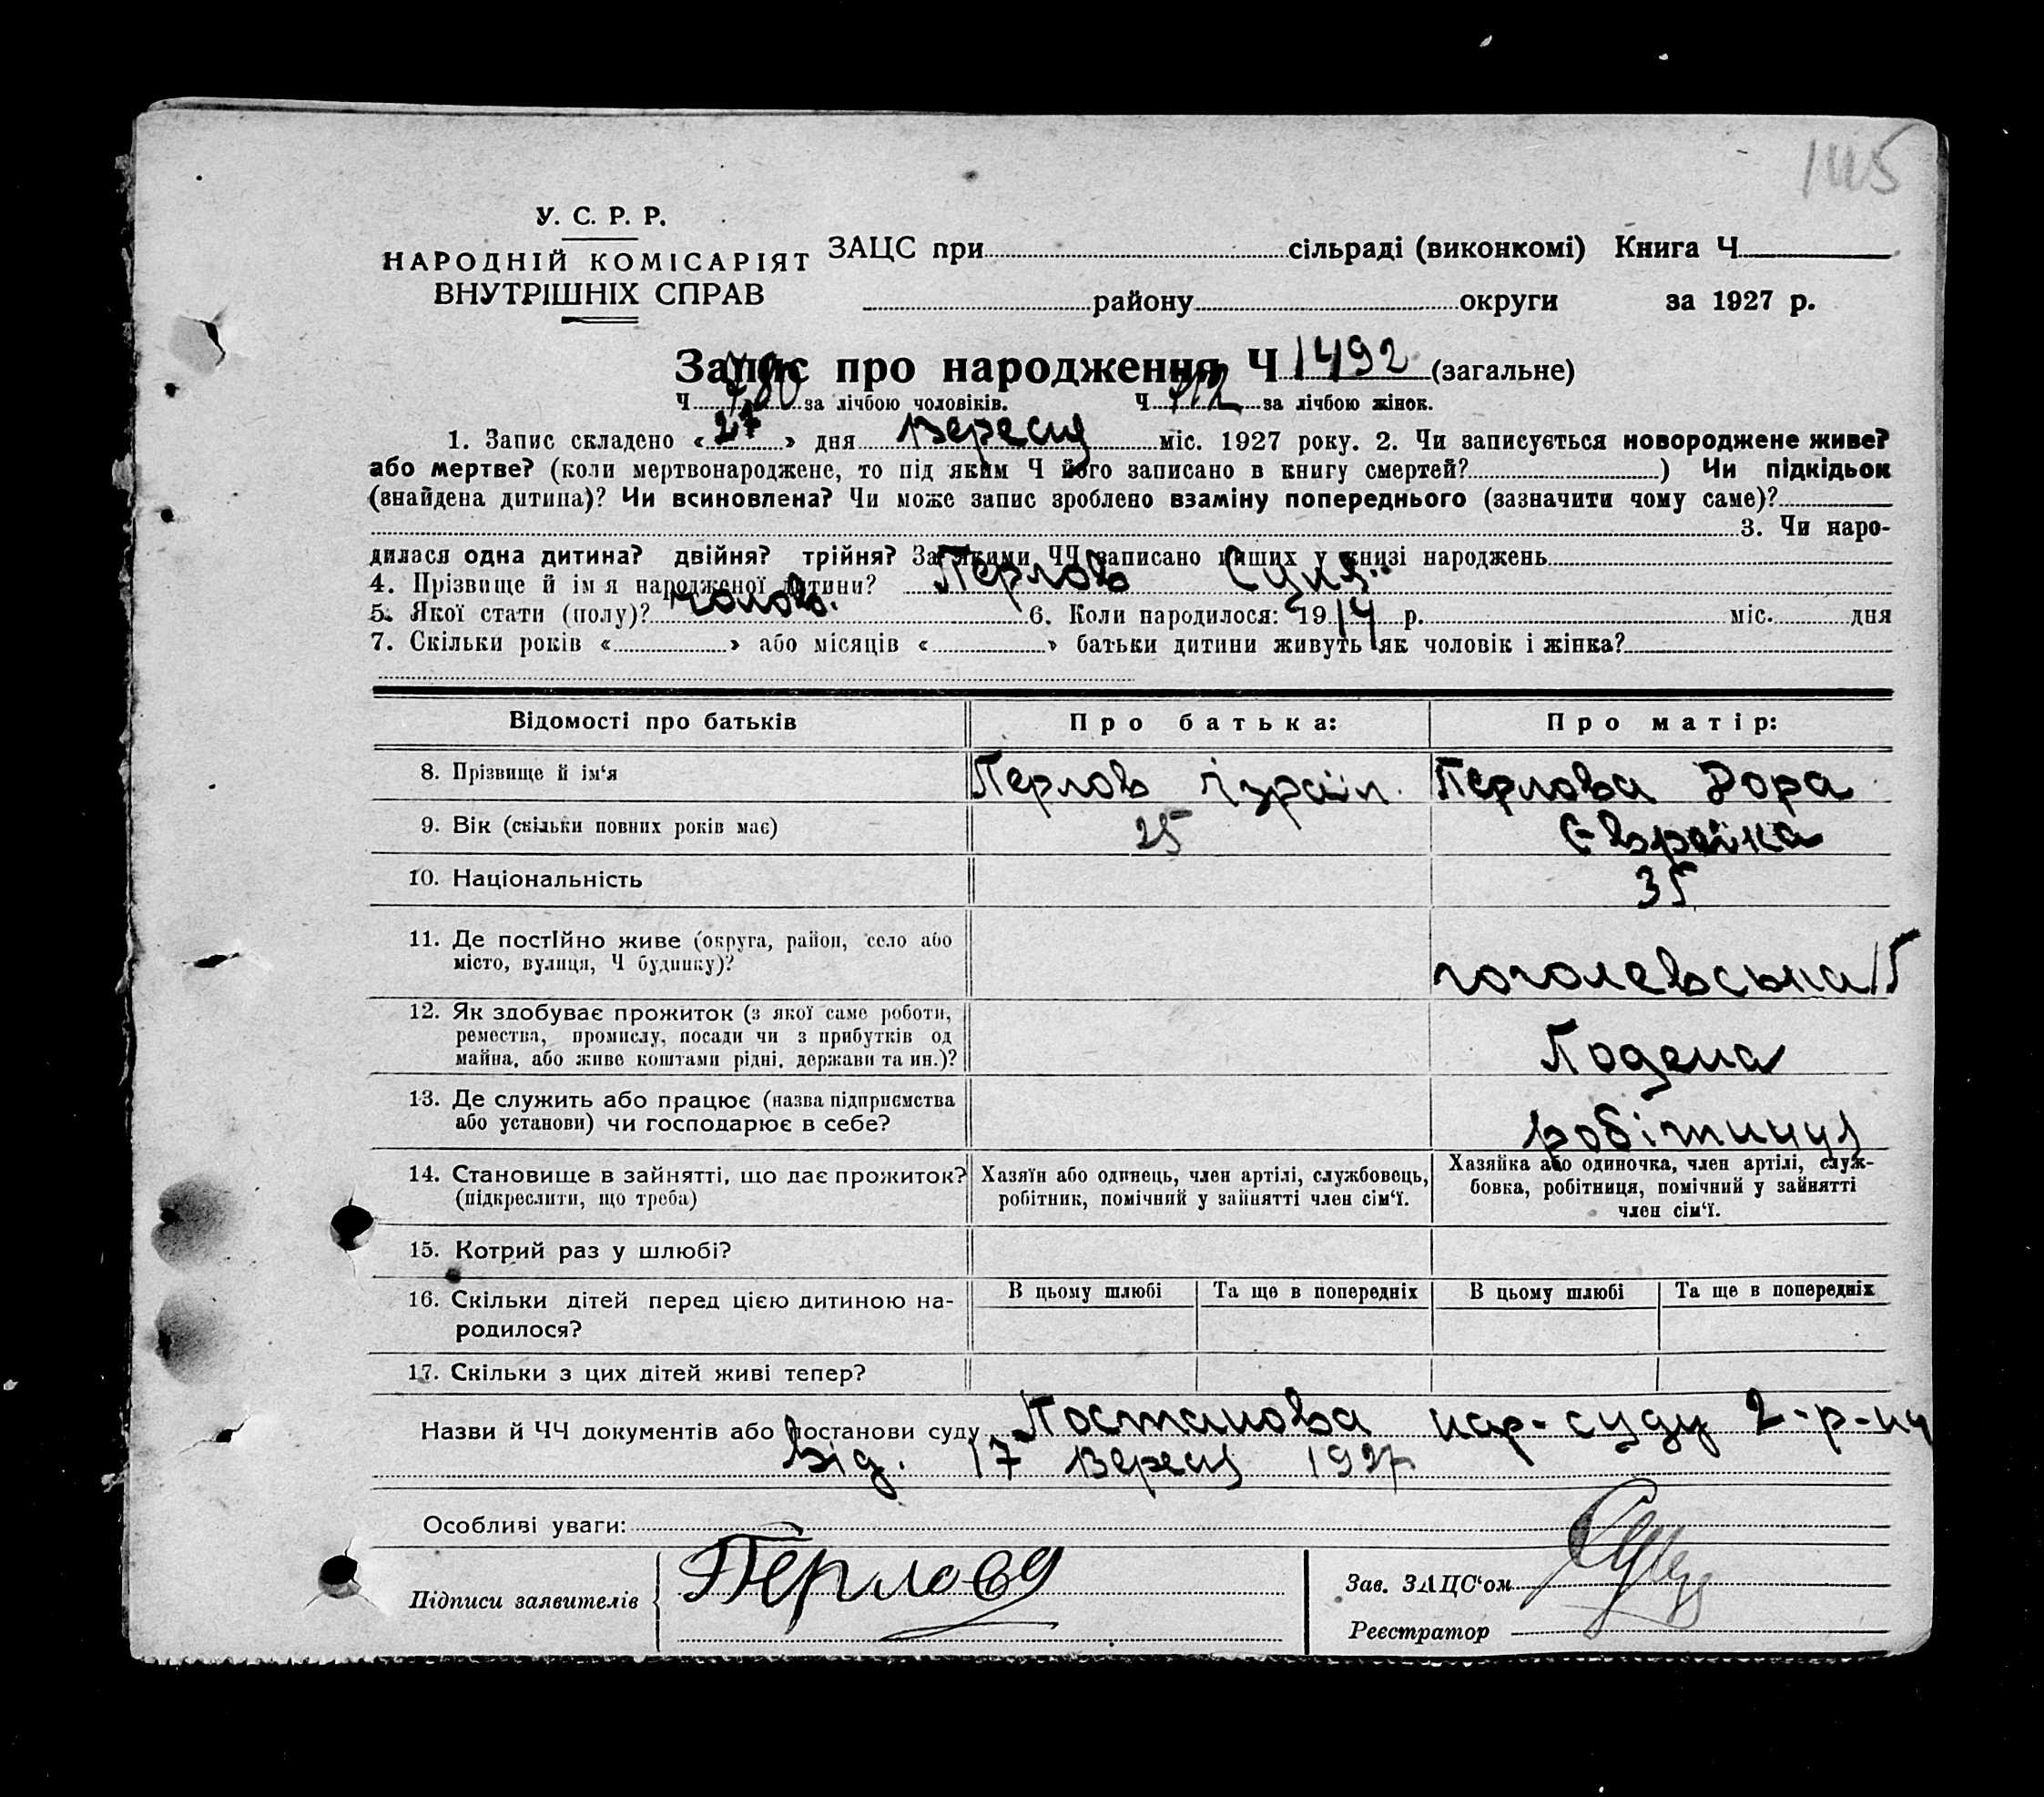 145
У. С. Р. Р.
НАРОДНІЙ КОМІСАРІЯТ
ВНУТРІШНІХ СПРАВ
ЗАЦС при сільраді (виконкомі) Книга Ч
району округи за 1927 р.
Запис про народження Ч 1492 (загальне)
Ч 780 за лічбою чоловіків. Ч 712 за лічбою жінок.
1. Запис складено « 27 » дня вересня міс. 1927 року. 2. Чи записується новороджене живе?
або мертве? (коли мертвонароджене, то під яким Ч його записано в книгу смертей? ) Чи підкідьок
(знайдена дитина)? Чи всиновлена? Чи може запис зроблено взаміну попереднього (зазначити чому саме)?
3. Чи наро-
дилася одна дитина? двійня? трійня? За якими ЧЧ записано инших у книзі народжень
4. Прізвище й ім'я народженої дитини? Перлов
5. Якої стати (полу)? чолов. 6. Коли народилося: 1914 р. міс. дня
7. Скільки років « » або місяців « » батьки дитини живуть як чоловік і жінка?
Відомості про батьків Про батька: Про матір:
8. Прізвище й ім'я Перлов Ізраїл. Перлова Дора
9. Вік (скільки повних років має) 25 Єврейка
10. Національність 35
11. Де постійно живе (округа, район, село або
місто, вулиця, Ч будинку)? гоголевська 15
12. Як здобуває прожиток (з якої саме роботи,
ремества, промислу, посади чи з прибутків од
майна, або живе коштами рідні, держави та ин.)? Подена
13. Де служить або працює (назва підприємства
або установи) чи господарює в себе? робітниця
14. Становище в зайнятті, що дає прожиток?
(підкреслити, що треба)
Хазяїн або одинець, член артілі, службовець,
робітник, помічний у зайнятті член сім'ї.
Хазяйка або одиночка, член артілі, служ-
бовка, робітниця, помічний у зайнятті
член сім'ї.
15. Котрий раз у шлюбі?
16. Скільки дітей перед цією дитиною на-
родилося?
В цьому шлюбі Та ще в попередніх В цьому шлюбі Та ще в попередніх
17. Скільки з цих дітей живі тепер?
Назви й ЧЧ документів або постанови суду Постанова нар-суду 2-р-ну
від. 17 вересня 1927
Особливі уваги:
Підписи заявителів Перлова
Зав. ЗАЦС'ом
Реєстратор